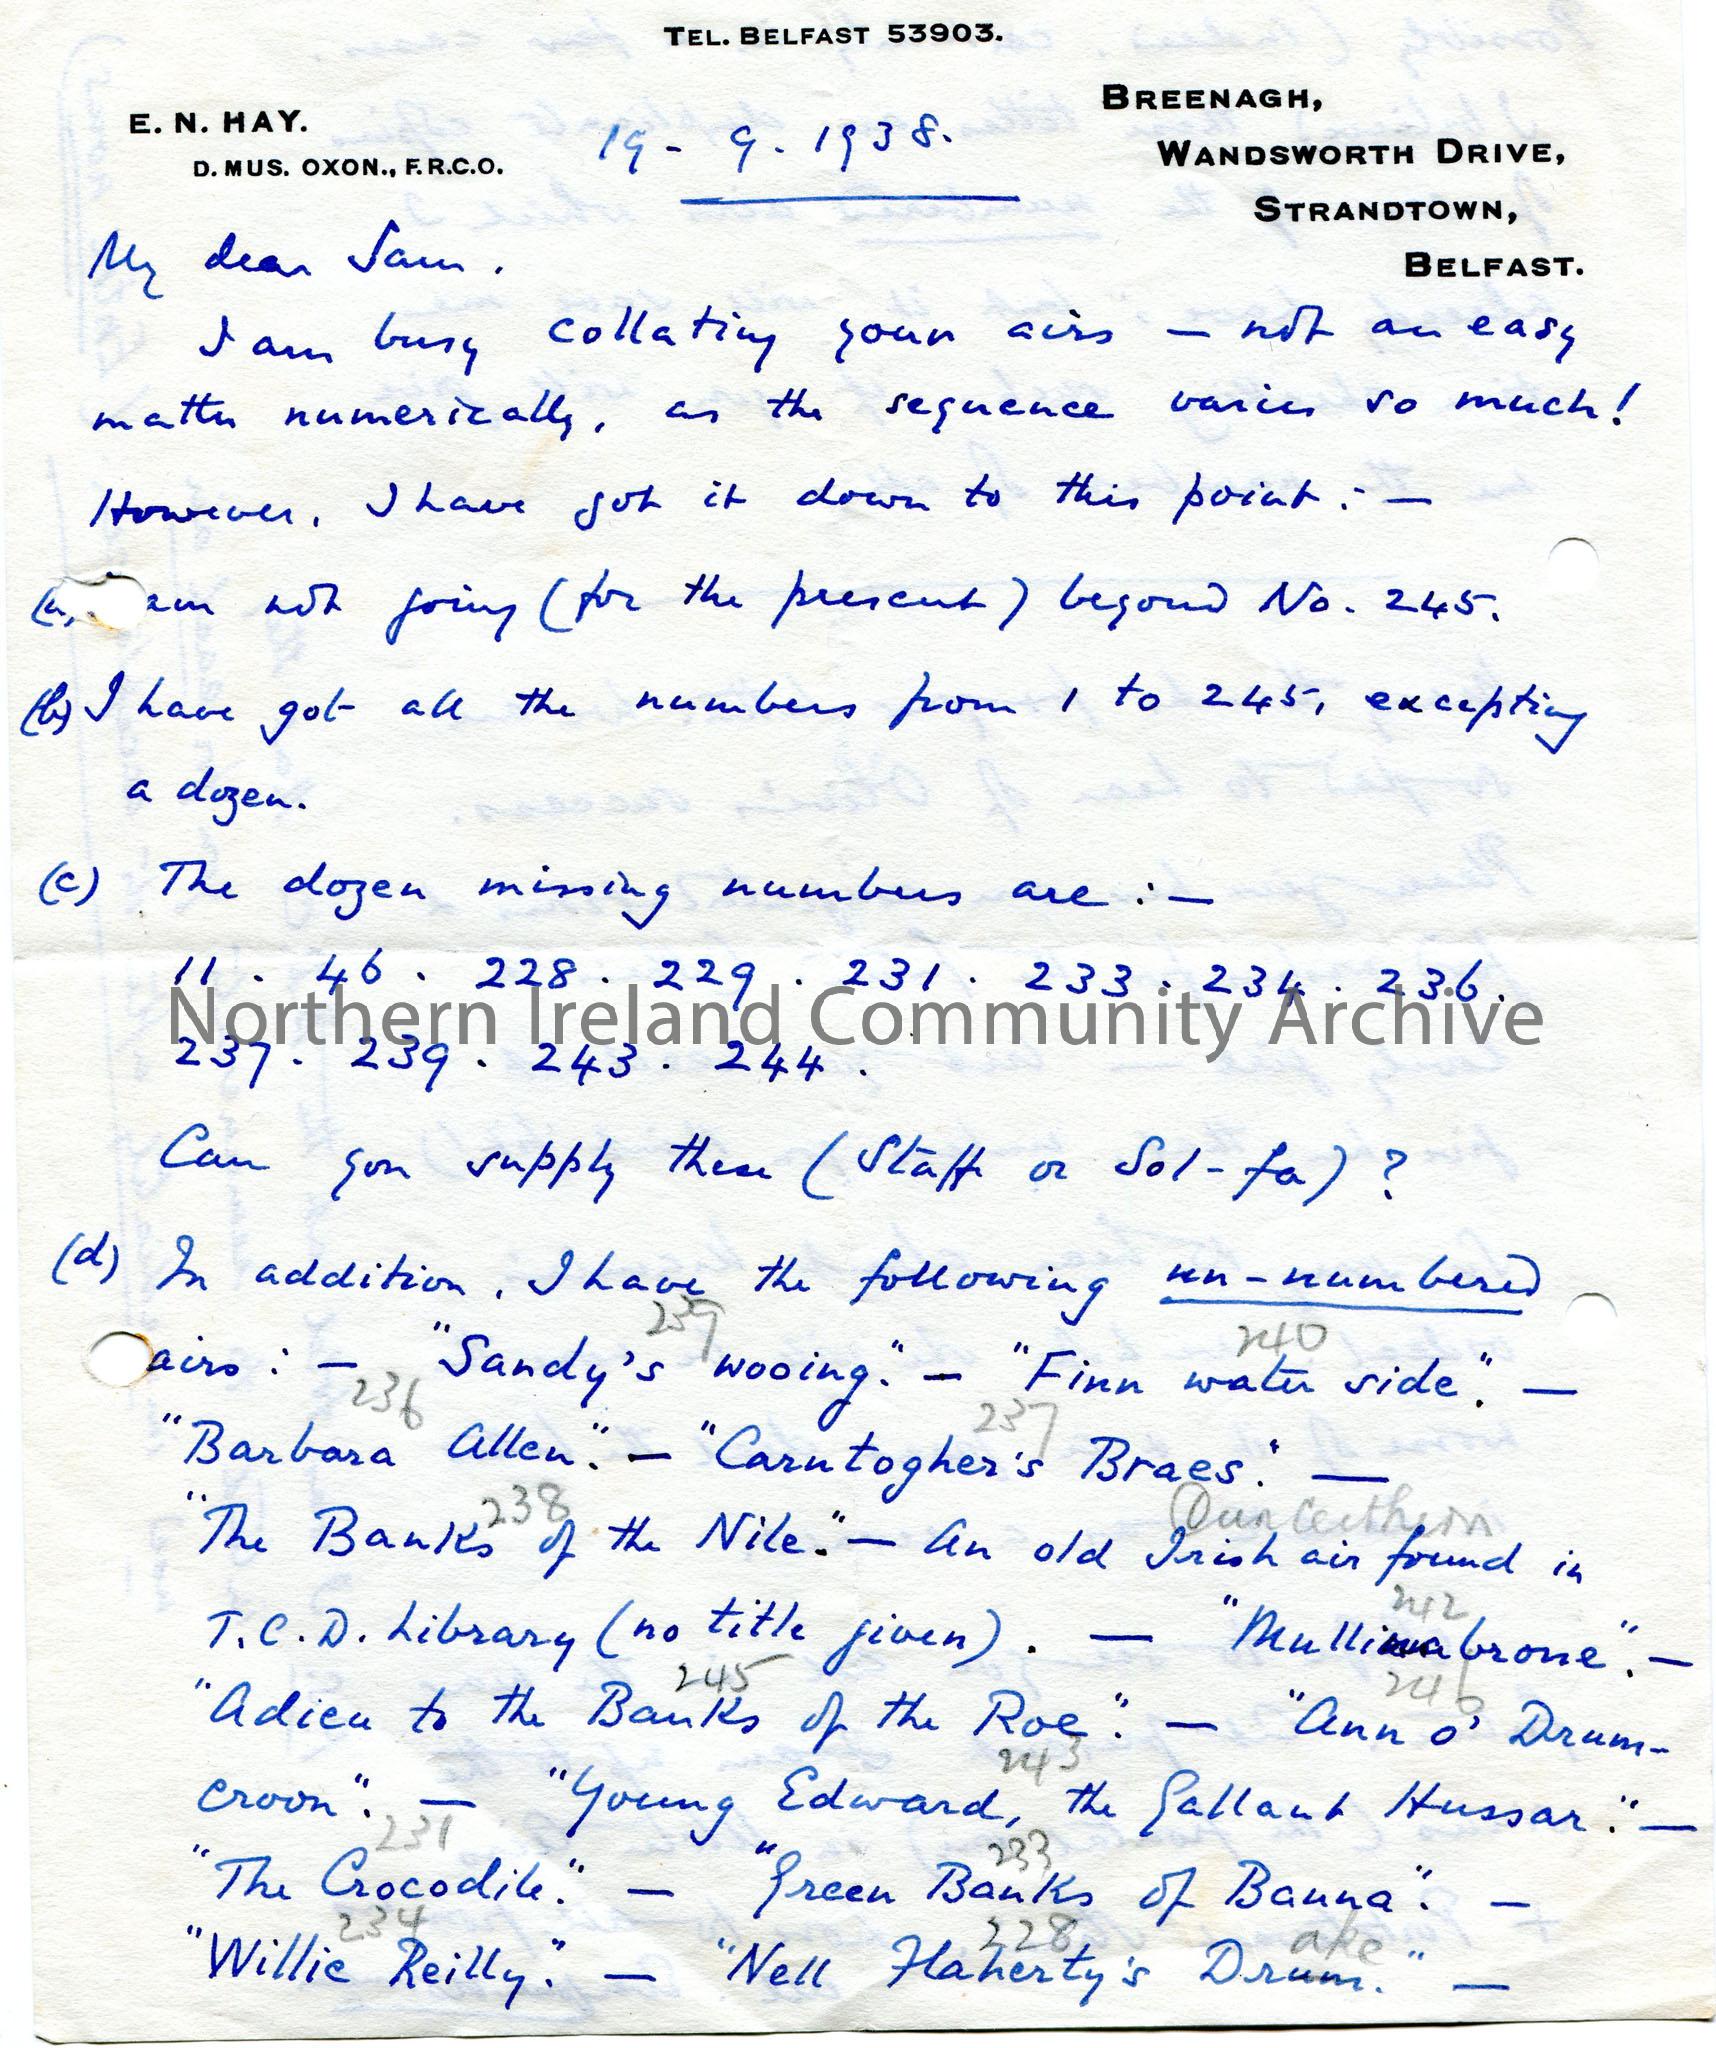 TEL. BELFAST 53903.
E. N. HAY.
D. MUS. OXON., F.R.C.O.
19 - 9. 1938.
BREENAGH,
WANDSWORTH DRIVE,
STRANDTOWN,
BELFAST.
My dear Sam.
I am busy collating your airs — not an easy
matter numerically, as the sequence varies so much!
However, I have got it down to this point: —
am not going (for the present) beyond No. 245.
(b) I have got all the numbers from 1 to 245, excepting
a dozen.
(c) The dozen missing numbers are : —
11 . 46 . 228 . 229 . 231 . 233 . 234 . 236 .
Northern Ireland Community Archive
237 . 239 . 243 . 244 .
Can you supply these (Staff or Sol-fa) ?
(d) In addition, I have the following un-numbered
239 240
airs : — "Sandy's wooing." — "Finn water side". —
236 237
"Barbara Allen". — "Carntogher's Braes." —
238
"The Banks of the Nile." — An old Irish air found in
T.C.D. Library (no title given) . — "Mullinabrone". —
242
245 246
"Adieu to the Banks of the Roe". — "Ann o' Drum-
243
croon". — "Young Edward, the Gallant Hussar". —
231 233
"The Crocodile." — "Green Banks of Banna". —
234 228 ake
"Willie Reilly." — "Nell Flaherty's Drum." —